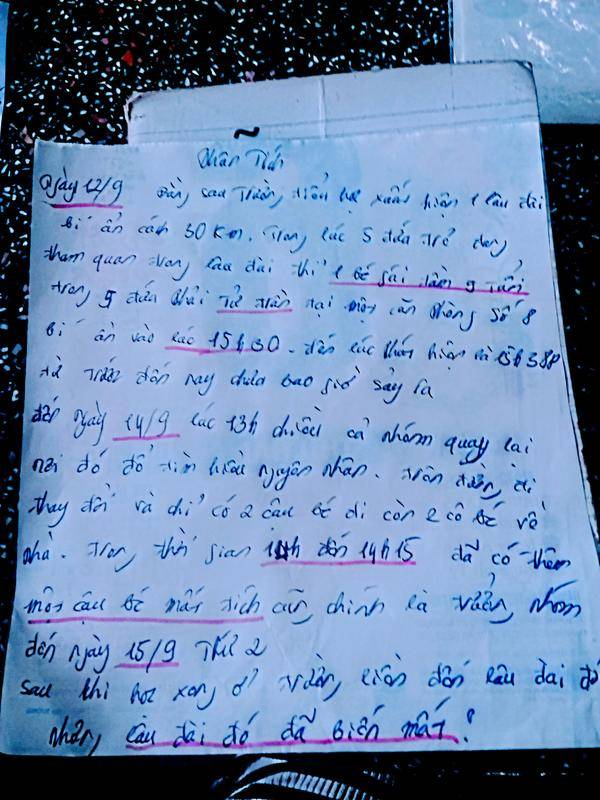 Phân Tích
Ngày 12/9 Đằng sau trường tiểu học xuất hiện 1 lâu đài
bí ẩn cách 30 Km. Trong lúc 5 đứa trẻ đang
tham quan trong lâu đài thì 1 bé gái tầm 9 tuổi
trong 5 đứa phải tử trần tại một căn phòng số 8
bí ẩn vào lúc 15h30. đến lúc phát hiện là 15h38p
từ trước đến nay chưa bao giờ sảy ra
đến ngày 14/9 lúc 13h chiều cả nhóm quay lại
nơi đó để tìm hiểu nguyên nhân. trên đường đi
thay đổi và chỉ có 2 cậu bé đi còn 2 cô bé về
nhà. trong thời gian 14h đến 14h15 đã có thêm
một cậu bé mất tích cũng chính là trưởng nhóm
đến ngày 15/9 Thứ 2
sau khi học xong ở trường liền đến lâu đài đó
nhưng lâu đài đó đã biến mất?